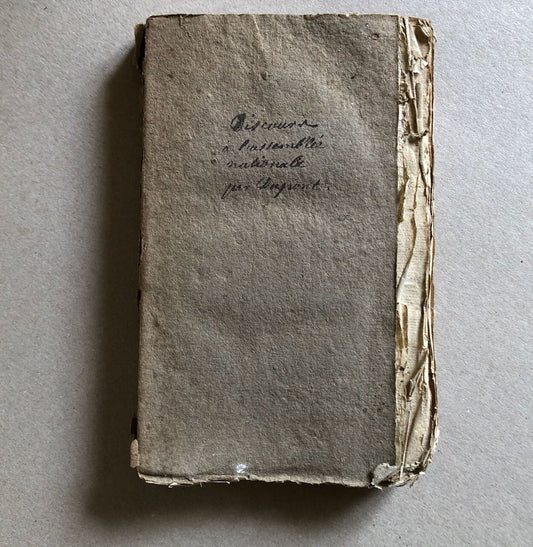 Discours
a l'assemblée
nationale
par Dupont